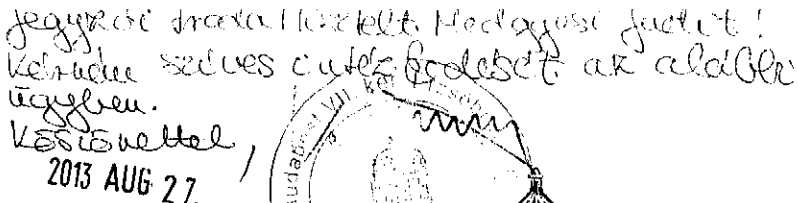 Jegyzői iroda! Tisztelt Medgyesi Judit!
Kérném szíves intézkedését az alábbi
ügyben.
Köszönettel,
2013 AUG 27.
VII. ker.